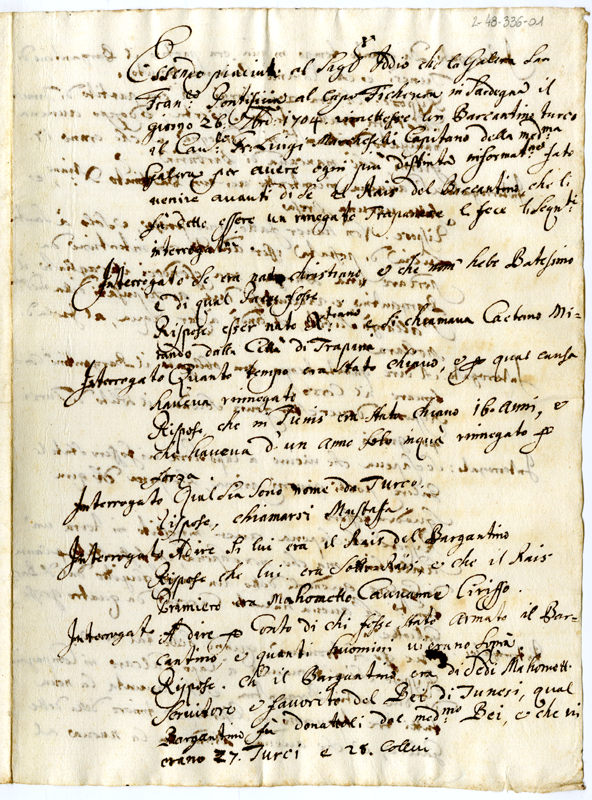 2-48-336-01
Essendo piaciuto al Sig.r Iddio che la Galera San
Fran.co Pontificia al Capo in Sardegna il
giorno 28 7bre 1704 un Bargantino turco
il Cau.r Fr. Luigi Marcheselli Capitano della med.ma
Galera per auere ogni più distinta informat.ne fatto
uenire auanti di se il Rais del Bargantino, che li
fù detto essere un rinegato Trapanese li fece li Seg.nti
interrogat.
Interrogato Se era nato christiano e che nome hebe Batesimo
e di qual Paese fosse
Rispose esser nato e si chiamaua Caetano Mi-
rando dalla Città di Trapana
Interrogato Quanto tempo era stato chiauo, e p qual causa
haueua rinnegato
Rispose, che in Tunis era stato chiauo 16 Anni, e
che haueua d'un anno solo in quà rinnegato p
forza
Interrogato Qual Sia Suo nome da Turco.
Rispose, chiamarsi Mustafa
Interrogato A dire Si lui era il Rais del Bargantino
Rispose che lui era Sotto Rais, e che il Rais
Primiero era Mahometto Ciriffo.
Interrogato A dire p Conto di chi fosse stato Armato al Bar-
cantino, e quanti huomini u'erano Soprà
Rispose. ch'il Bargantino era di Mahomett
Seruitore e fauorito del Bei di Tunesi, qual
Bargantino fù donatoli dal med.mo Bei, e che ui
erano 27. Turci e 28.